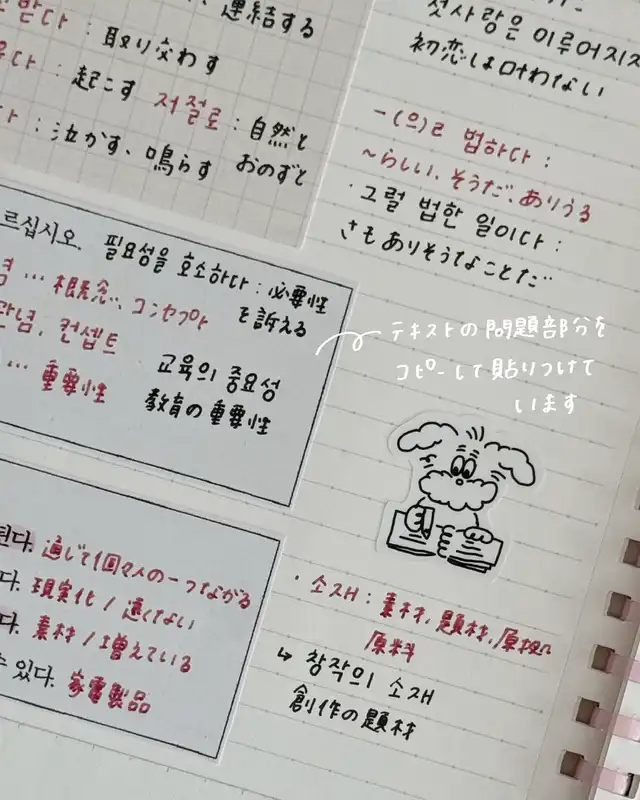 받다 : 連結する
다 : 取り交わす
다 : 起こす 저절로 : 自然と
다 : 泣かす、鳴らす おのずと
첫사랑은 이루어지지
初恋は叶わない
-(으)ㄹ 법하다 :
~らしい、そうだ、ありうる
・그럴 법한 일이다 :
さもありそうなことだ
르십시오. 필요성을 호소하다 : 必要性
を訴える
념 … 概念、コンセプト
관념, 컨셉트
교육의 중요성
… 重要性 教育の重要性
テキストの問題部分を
コピーして貼りつけて
います
된다. 通じて1個々人の一つながる
다. 現実化 / 遠くない
다. 素材 / 増えている
수 있다. 家電製品
・소재 : 素材、題材、原料
↳ 창작의 소재
創作の題材